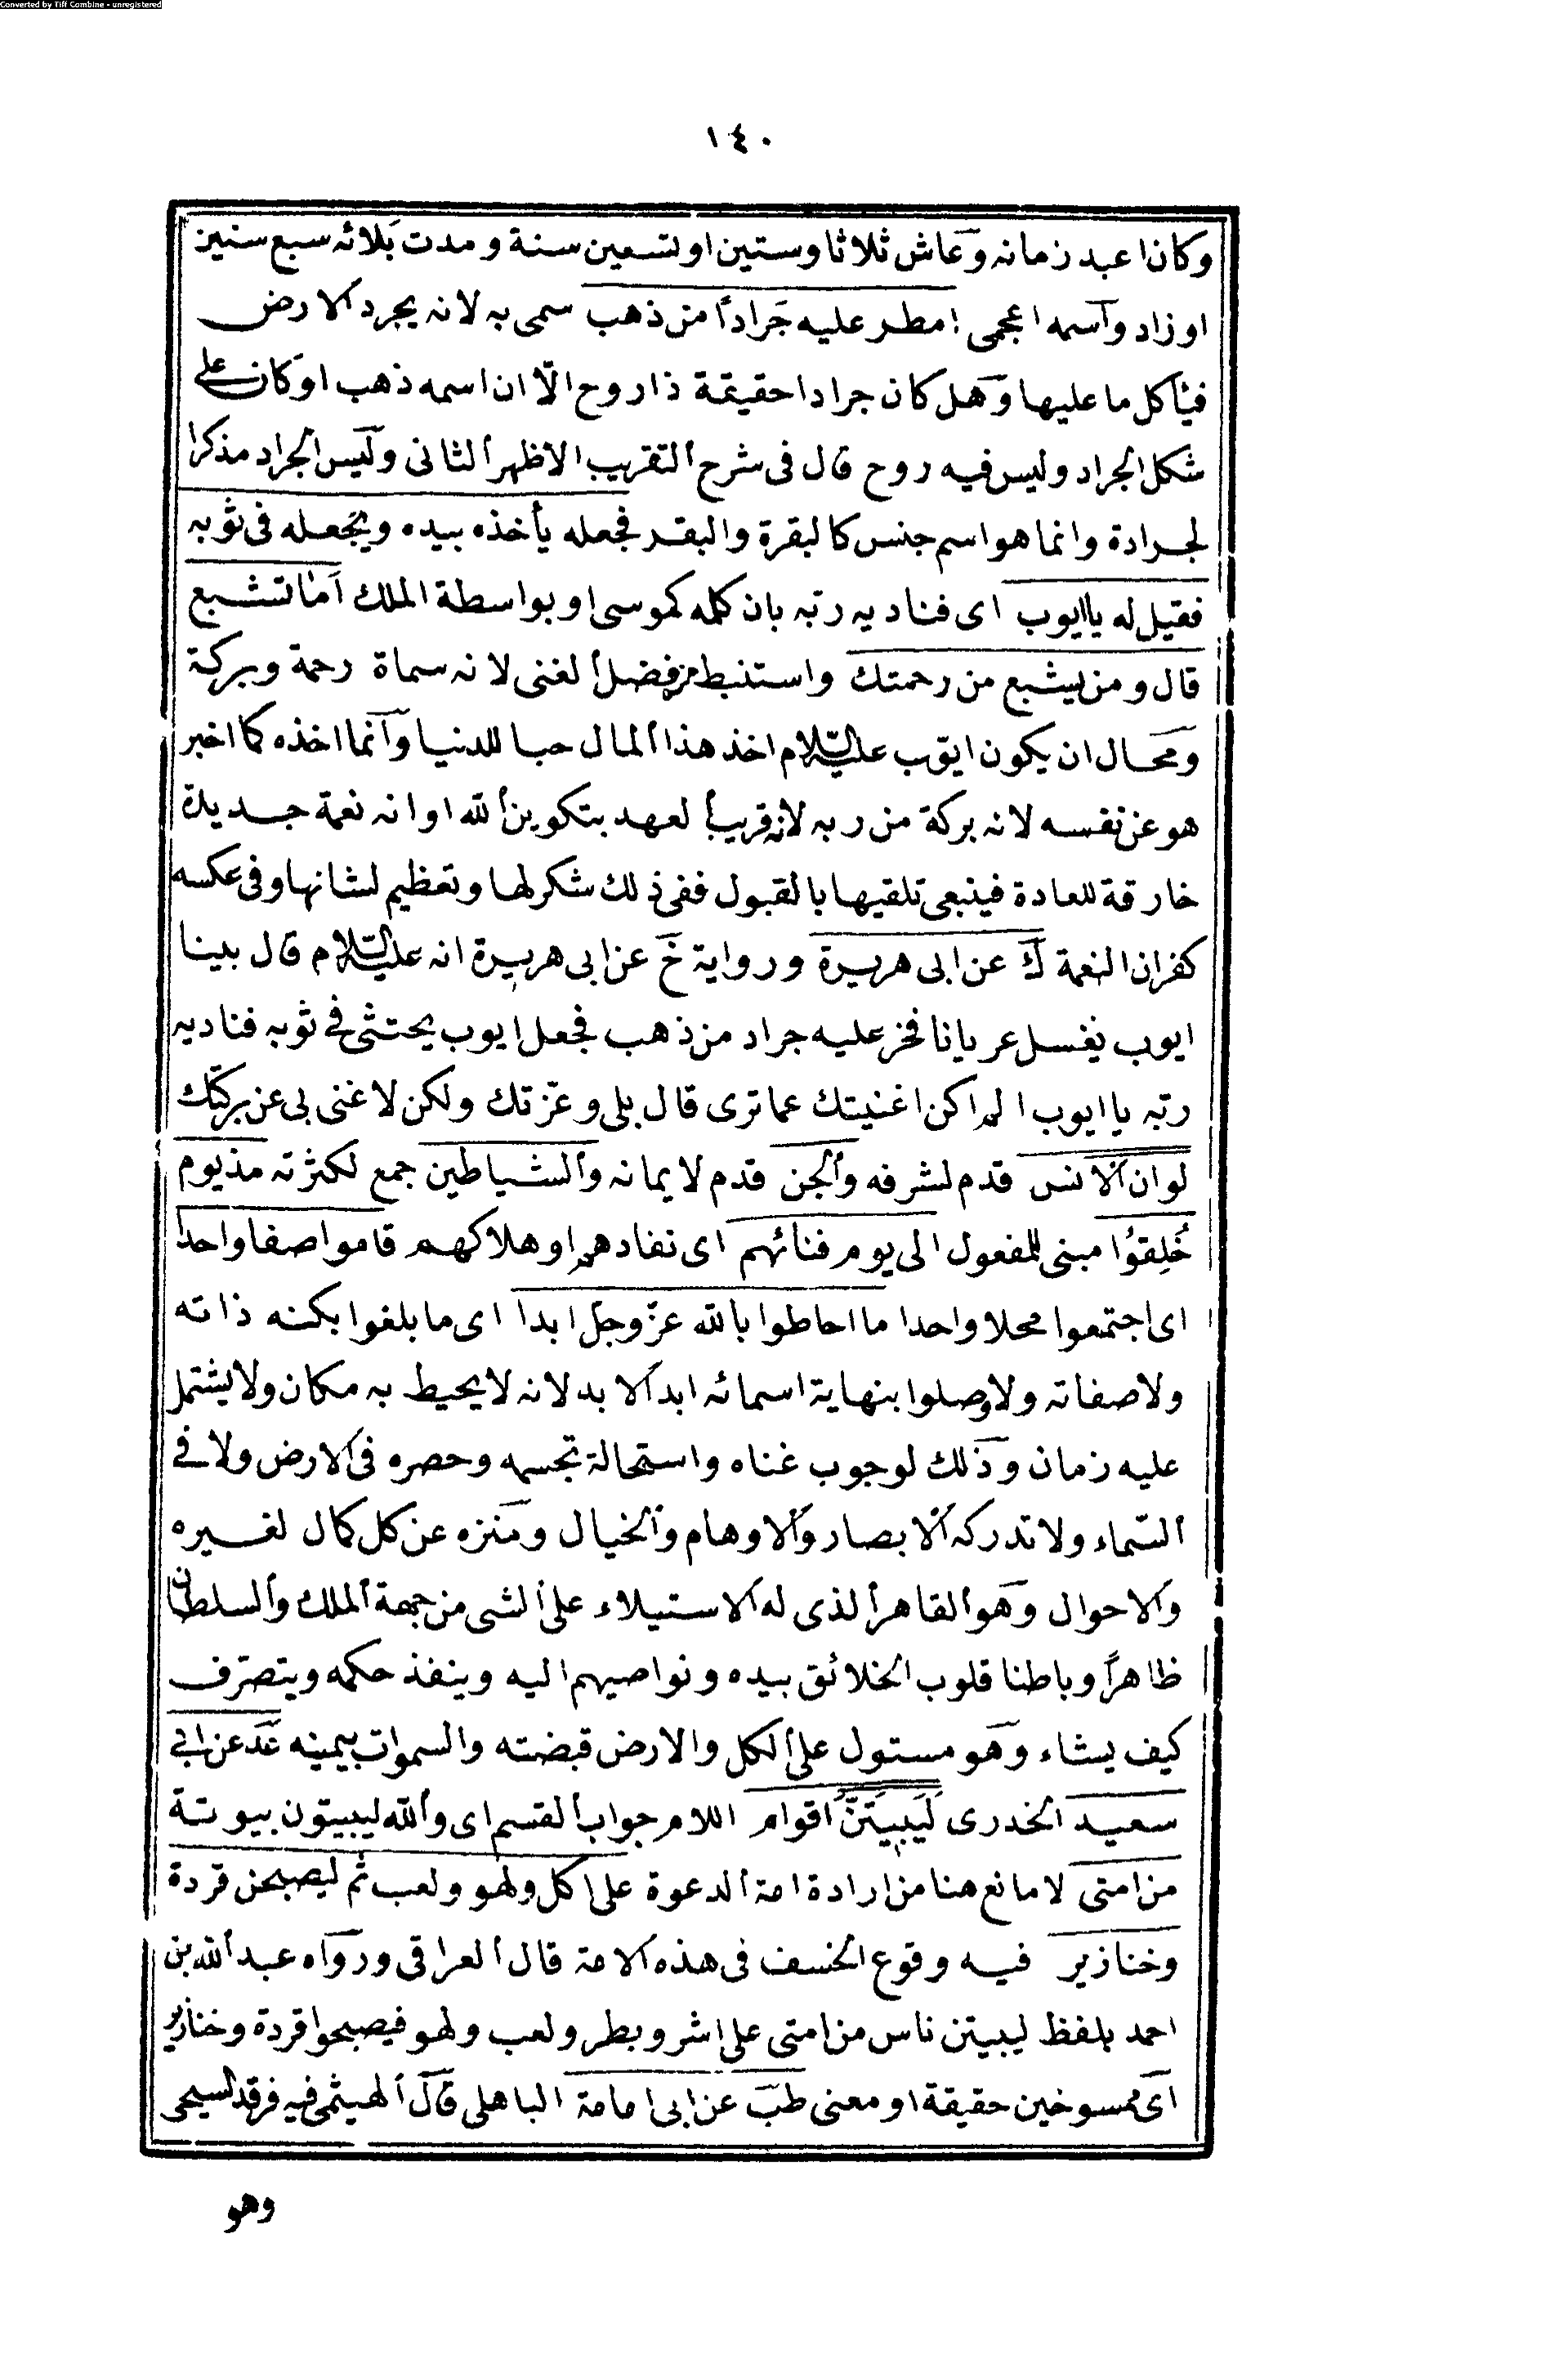 Converted by Tiff Combine - unregistered
١٤٠
وكان اعبد زمانه وعاش ثلاثا وستين او تسعين سنة ومدت بلائه سبع سنين
او زاد واسمه اعجمى امطر عليه جَراداً من ذهب سمى به لانه يجرد الارض
فيأكل ما عليها وهل كان جرادا حقيقة ذا روح الّا ان اسمه ذهب او كان على
شكل الجراد وليس فيه روح قال فى شرح التقريب الاظهر الثانى وليس الجراد مذكرا
لجرادة وانما هو اسم جنس كالبقرة والبقر فجعله يأخذه بيده ويجعله فى ثوبه
فقيل له يا ايوب اى فناديه ربّه بان كلمه كموسى او بواسطة الملك أما تشبع
قال ومن يشبع من رحمتك واستنبط من فضل الغنى لانه سماة رحمة وبركة
ومحال ان يكون ايوّب عليه السّلام اخذ هذا المال حبا للدنيا وانما اخذه كما اخبر
هو عن نفسه لانه بركة من ربه لانه قريب العهد بتكوين الله او انه نعمة جديدة
خارقة للعادة فينبغى تلقيها بالقبول ففى ذلك شكر لها وتعظيم لشانها وفى عكسه
كفران النعمة ك عن ابى هريرة ورواية خ عن ابى هريرة انه عليه السّلام قال بينا
ايوب يغسل عريانا فخر عليه جراد من ذهب فجعل ايوب يحتثى فى ثوبه فناديه
ربّه يا ايوب الم اكن اغنيتك عما ترى قال بلى وعّزتك ولكن لا غنى بى عن بركتك
لو ان الانس قدم لشرفه والجن قدم لايمانه والشياطين جمع لكثرته مذ يوم
خُلِقوُا مبنى للمفعول الى يوم فنائهم اى نفادهم او هلاكهم قاموا صفا واحدا
اى اجتمعوا محلا واحدا ما احاطوا بالله عزّ وجلّ ابدا اى ما بلغوا بكنه ذاته
ولا صفاته ولا وصلوا بنهاية اسمائه ابد الابد لانه لا يحيط به مكان ولا يشتمل
عليه زمان وذلك لوجوب غناه واستحالة تجسمه وحصره فى الارض ولا فى
السّماء ولا تدركه الابصار والاوهام والخيال ومنزه عن كل كمال لغيره
والاحوال وهو القاهر الذى له الاستيلاء على الشى من جهة الملك والسلطان
ظاهراً وباطنا قلوب الخلائق بيده ونواصيهم اليه وينفذ حكمه ويتصرّف
كيف يشاء وهو مستول على الكل والارض قبضته والسموات بيمينه عد عن ابى
سعيد الخدرى لَيَبِيَتَنَّ اقوام اللام جواب القسم اى والله ليبيتون بيوتة
من امتى لا مانع هنا من ارادة امة الدعوة على اكل ولهو ولعب ثم ليصبحن قردة
وخنازير فيه وقوع الخسف فى هذه الامة قال العراقى ورواه عبد الله بن
احمد بلفظ ليبيتن ناس من امتى على اشر وبطر ولعب ولهو فيصبحوا قردة وخنازير
اى ممسوخين حقيقة او معنى طب عن ابى امامة الباهلى قال الهيثمى فيه فرقد السبحى
وهو